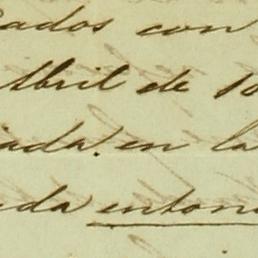 cados con
Abril de 18
iada. en la
da entonc